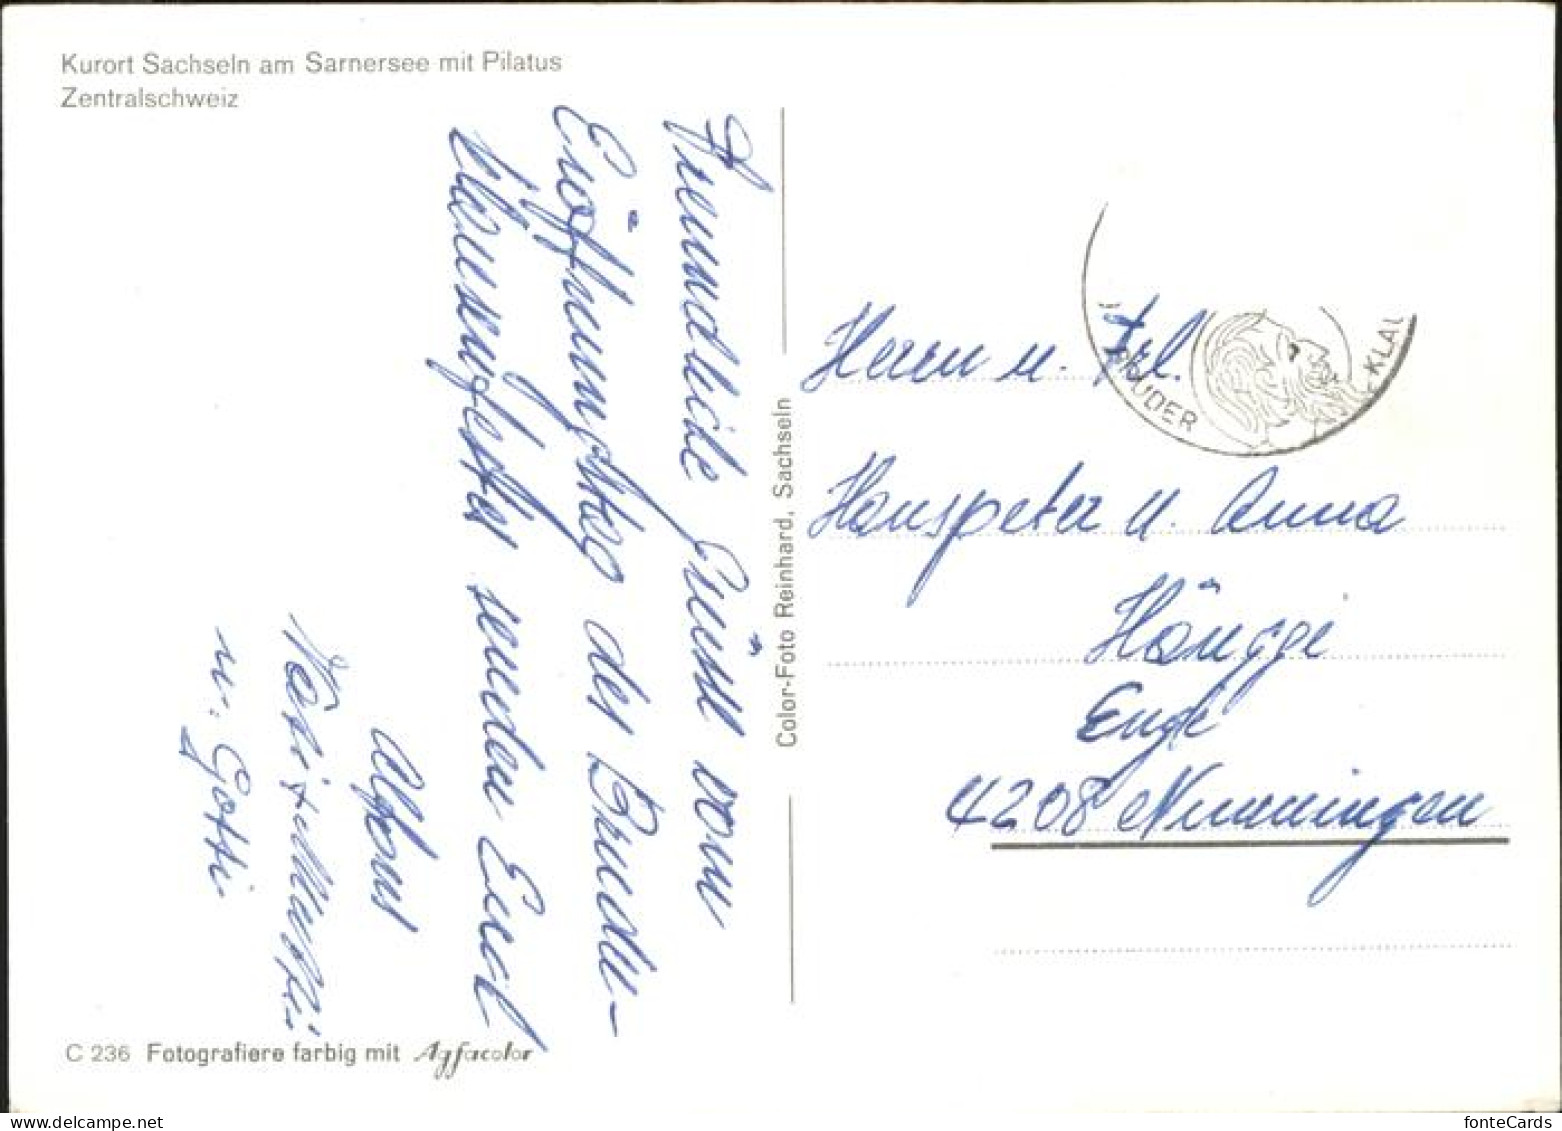 Kurort Sachseln am Sarnersee mit Pilatus
Zentralschweiz
Freundliche Grüsse vom
Eröffnungstag des Bruder-
Klausenfestes senden Euch
Alfons
u. Gotti
Color-Foto Reinhard, Sachseln
BRUDER KLAU
Herrn u. Frl.
Hanspeter u. Anna
Hänggi
Enge
4208 Nunningen
C 236 Fotografiere farbig mit Agfacolor
fonteCards